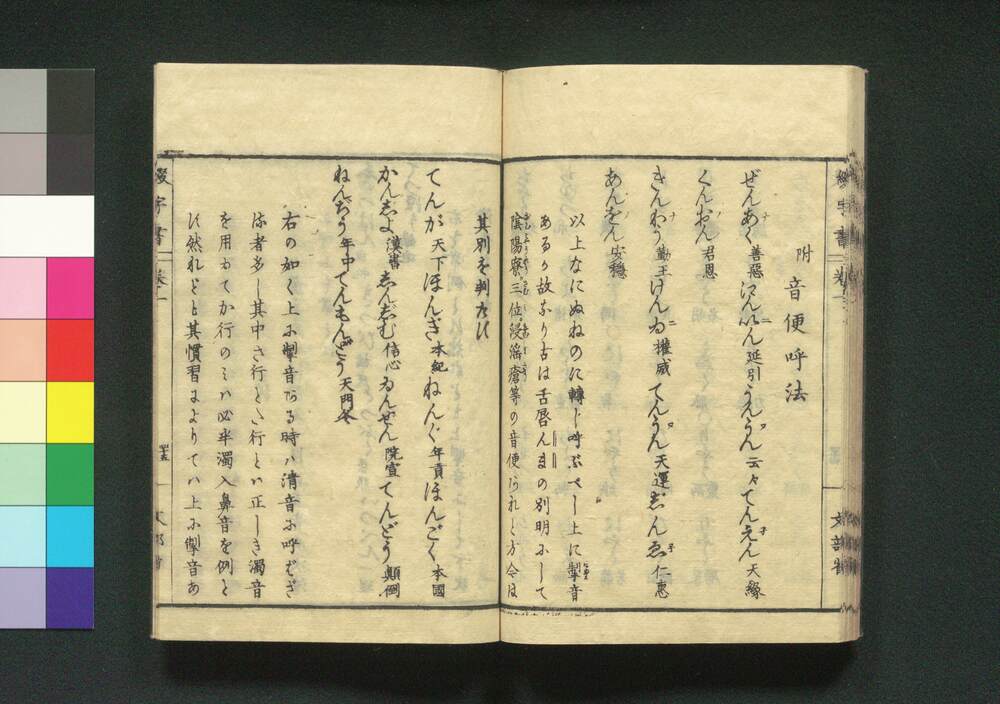 綴字書 卷一
文部省
附 音便呼法
ぜんあく 善惡 にんいん 延引 うんうん 云々 てんえん 天緣
くんおん 君恩
きんわう 勤王 けんゐ 權威 てんうん 天運 じんゑ 仁惠
あんをん 安穩
以上なにぬねのに轉じ呼ぶべし上に掣音
あるが故なり古は舌唇んまの別明にして
陰陽寮三位浸淫瘡等の音便られど方今は
其別を判たず
てんが 天下 ほんぎ 本紀 ねんぐ 年貢 ほんごく 本國
かんじよ 漢書 しんじむ 信心 ゐんぜん 院宣 てんどう 顚倒
ねんぢう 年中 てんもんどう 天門冬
右の如く上に掣音ある時ハ清音に呼ばざ
る者多し其中さ行とた行とハ正しき濁音
を用ゐてか行のミハ必半濁入鼻音を例と
す然れども其慣習によりてハ上に掣音あ
綴字書 卷一
十五
文部省